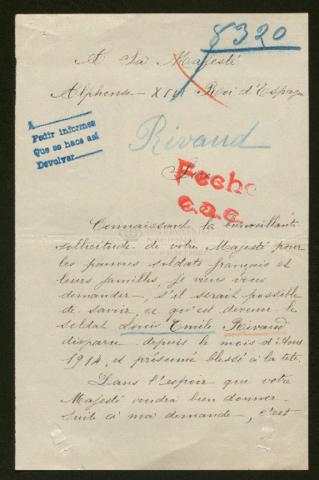 8320
A Sa Majesté
Alphonse - XIII Roi d'Espagne
A
Pedir informes
Que se hace así
Devolver
Rivaud
Sire
Fecho
c.a.c.
Connaissant la bienveillante
sollicitude de votre Majesté pour
les pauvres soldats français et
leurs familles, je viens vous
demander, s'il serait possible
de savoir, ce qu'est devenu le
soldat Louis Emile Rivaud
disparu depuis le mois d'Aout
1914, et présumé blessé à la tête.
Dans l'espoir que votre
Majesté voudra bien donner
suite à ma demande, c'est